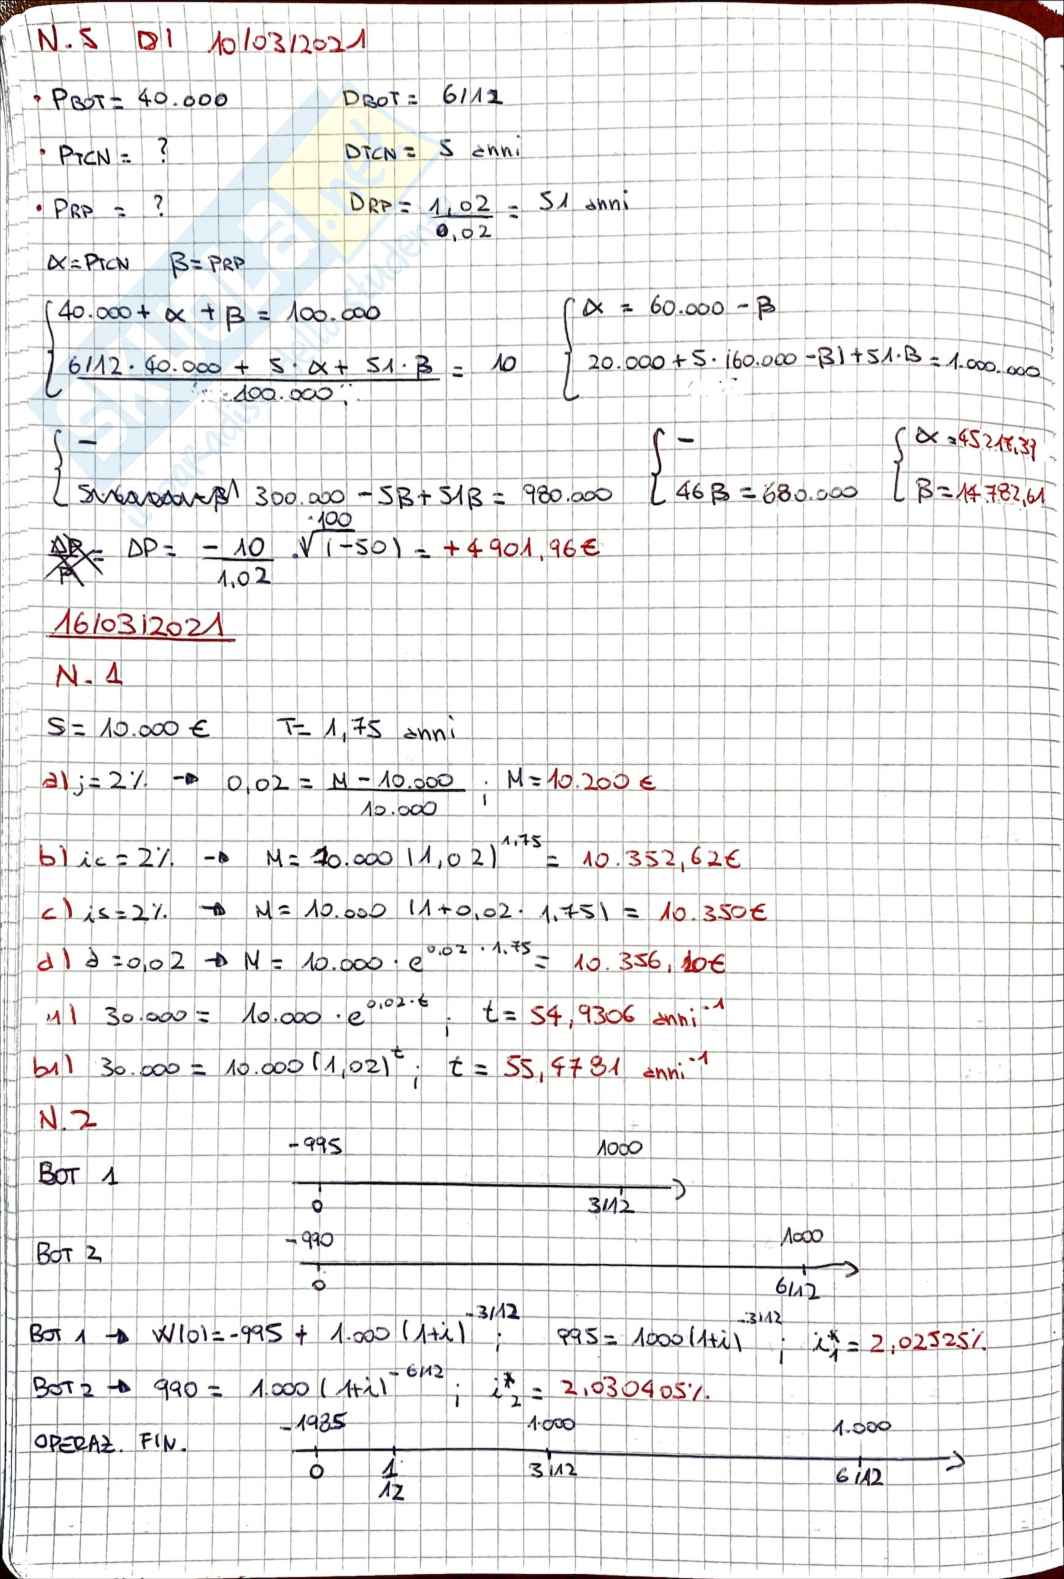 N.5 DI 10/03/2021
• PBOT = 40.000 DBOT = 6/12
• PTCN = ? DTCN = 5 anni
• PRP = ? DRP = 1,02 / 0,02 = 51 anni
α = PTCN β = PRP
{ 40.000 + α + β = 100.000 { α = 60.000 - β
6/12 · 40.000 + 5 · α + 51 · β / 100.000 = 10 20.000 + 5 · (60.000 - β) + 51 · β = 1.000.000
{ - { - { α = 45217,39
300.000 - 5β + 51β = 980.000 46β = 680.000 β = 14782,61
ΔP = - 10 / 1,02 · 100 √(-50) = +4901,96€
16/03/2021
N. 1
S = 10.000 € T = 1,75 anni
a) j = 2% → 0,02 = M - 10.000 / 10.000 ; M = 10.200 €
b) ic = 2% → M = 10.000 (1,02)^1,75 = 10.352,62€
c) is = 2% → M = 10.000 (1+0,02 · 1,75) = 10.350€
d) δ = 0,02 → M = 10.000 · e^0,02 · 1,75 = 10.356,20€
30.000 = 10.000 · e^0,02·t ; t = 54,9306 anni^-1
b1) 30.000 = 10.000 (1,02)^t ; t = 55,4781 anni^-1
N. 2
-995 1000
BOT 1
0 3/12
-990 1000
BOT 2
0 6/12
BOT 1 → W(0) = -995 + 1.000 (1+i)^-3/12 ; 995 = 1000 (1+i)^-3/12 ; i*1 = 2,02525%
BOT 2 → 990 = 1.000 (1+i)^-6/12 ; i*2 = 2,030405%
-1985 1.000 1.000
OPERAZ. FIN.
0 1/12 3/12 6/12